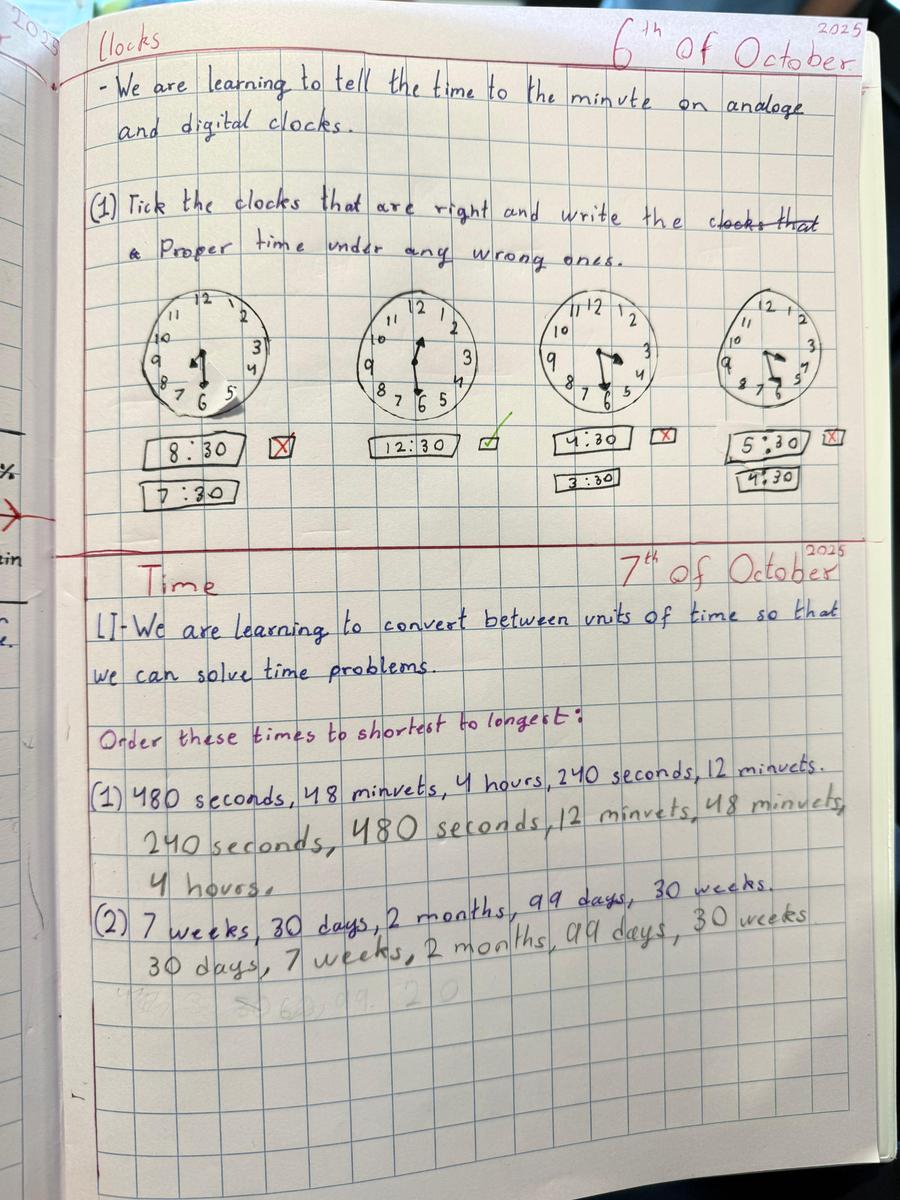 2025
Clocks
6th of October
2025
- We are learning to tell the time to the minute on analoge
and digital clocks.
(1) Tick the clocks that are right and write the clocks that
a Proper time under any wrong ones.
12 1 2 3 4 5 6 7 8 9 10 11
12 1 2 3 4 5 6 7 8 9 10 11
12 1 2 3 4 5 6 7 8 9 10 11
12 1 2 3 4 5 6 7 8 9 10 11
8:30 12:30 4:30 5:30
7:30 3:30 4:30
%
in
e.
Time
7th of October
2025
LI-We are learning to convert between units of time so that
we can solve time problems.
Order these times to shortest to longest:
(1) 480 seconds, 48 minvets, 4 hours, 240 seconds, 12 minvets.
240 seconds, 480 seconds, 12 minvets, 48 minvets,
4 hours.
(2) 7 weeks, 30 days, 2 months, 99 days, 30 weeks.
30 days, 7 weeks, 2 months, 99 days, 30 weeks